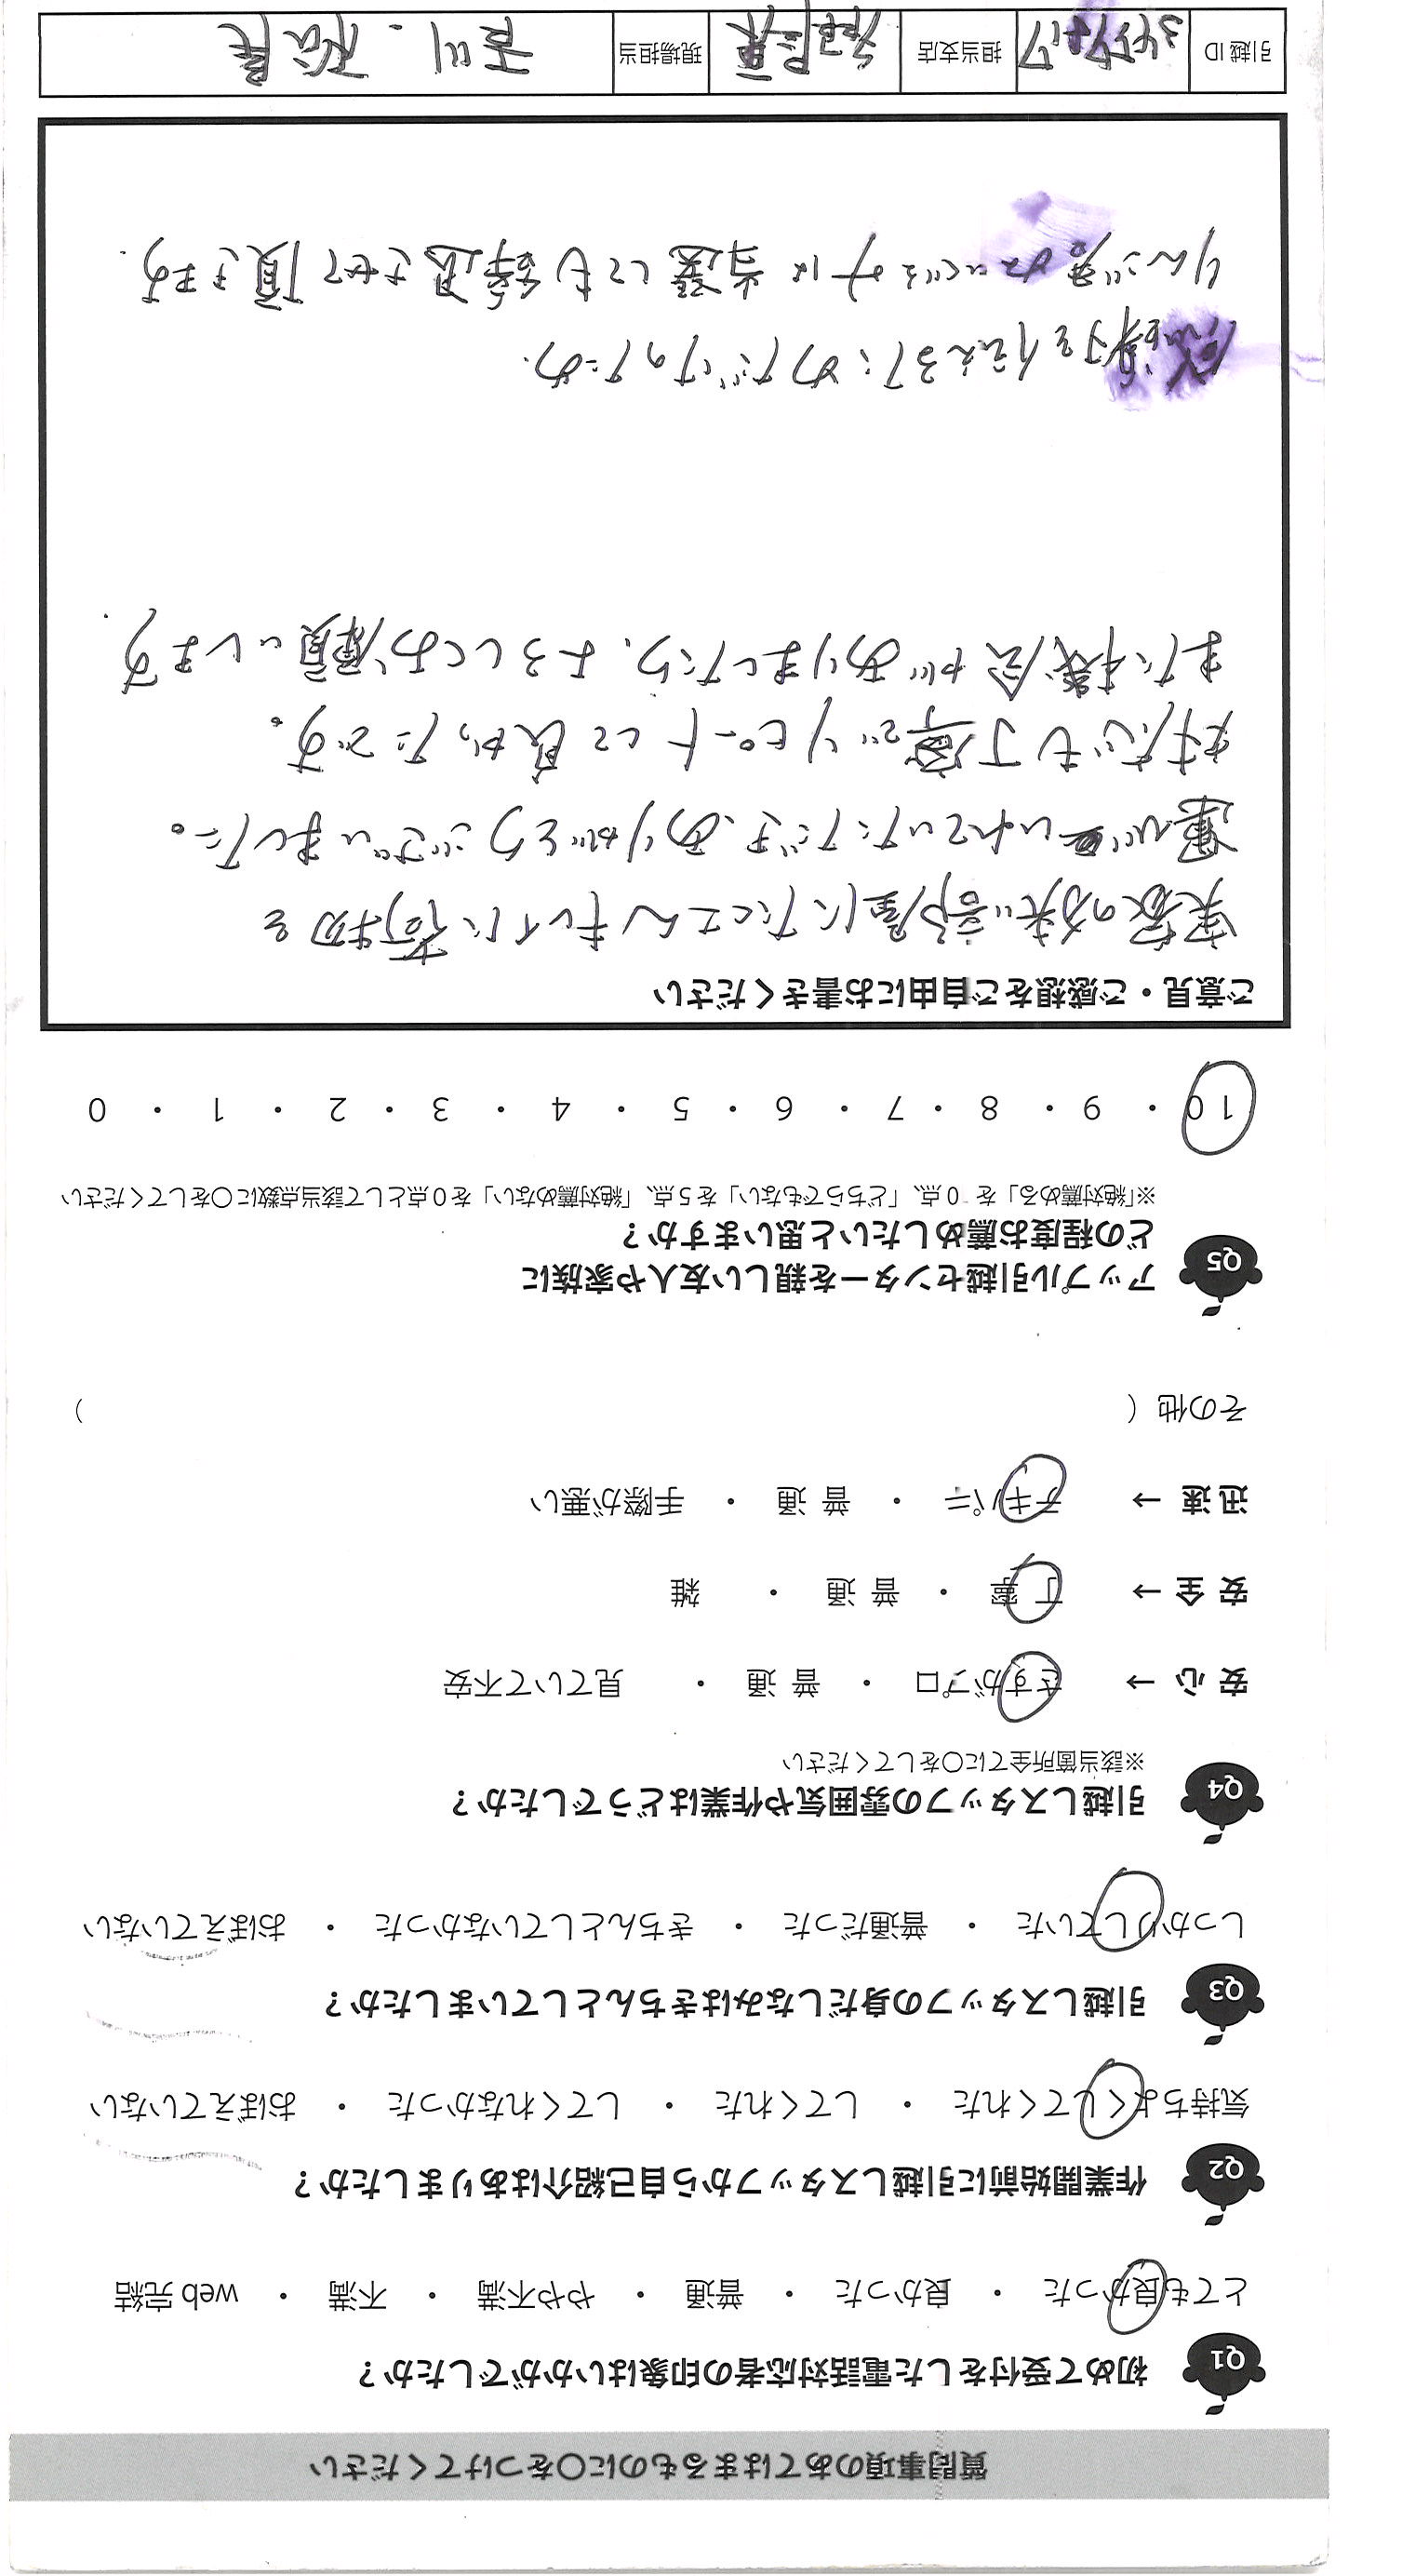 質問事項のあてはまるものに〇をつけてください
Q1 初めて受付をした電話対応者の印象はいかがでしたか?
とても良かった ・ 良かった ・ 普通 ・ やや不満 ・ 不満 ・ web完結
Q2 作業開始前に引越しスタッフから自己紹介はありましたか?
気持ちよくしてくれた ・ してくれた ・ してくれなかった ・ おぼえていない
Q3 引越しスタッフの身だしなみはきちんとしていましたか?
しっかりしていた ・ 普通だった ・ きちんとしていなかった ・ おぼえていない
Q4 引越しスタッフの雰囲気や作業はどうでしたか?
※該当箇所全てに〇をしてください
安心 → さすがプロ ・ 普通 ・ 見ていて不安
安全 → 丁寧 ・ 普通 ・ 雑
迅速 → テキパキ ・ 普通 ・ 手際が悪い
その他 ( )
Q5 アップル引越センターを親しい友人や家族に
どの程度お薦めしたいと思いますか?
※「絶対薦める」を 0点、「どちらでもない」を5点、「絶対薦めない」を0点として該当点数に〇をしてください
10 ・ 9 ・ 8 ・ 7 ・ 6 ・ 5 ・ 4 ・ 3 ・ 2 ・ 1 ・ 0
ご意見・ご感想をご自由にお書きください
実家の狭い部屋にたくさんキレイに荷物を
運びいれていただき、ありがとうございました。
対応も丁寧でリピートして良かったです。
また機会がありましたら、よろしくお願いします.
感謝を伝えるためだけのため.
りんご をいただいては 当選しても辞退させて頂きます.
引越ID 担当支店 現場担当 吉川・松尾